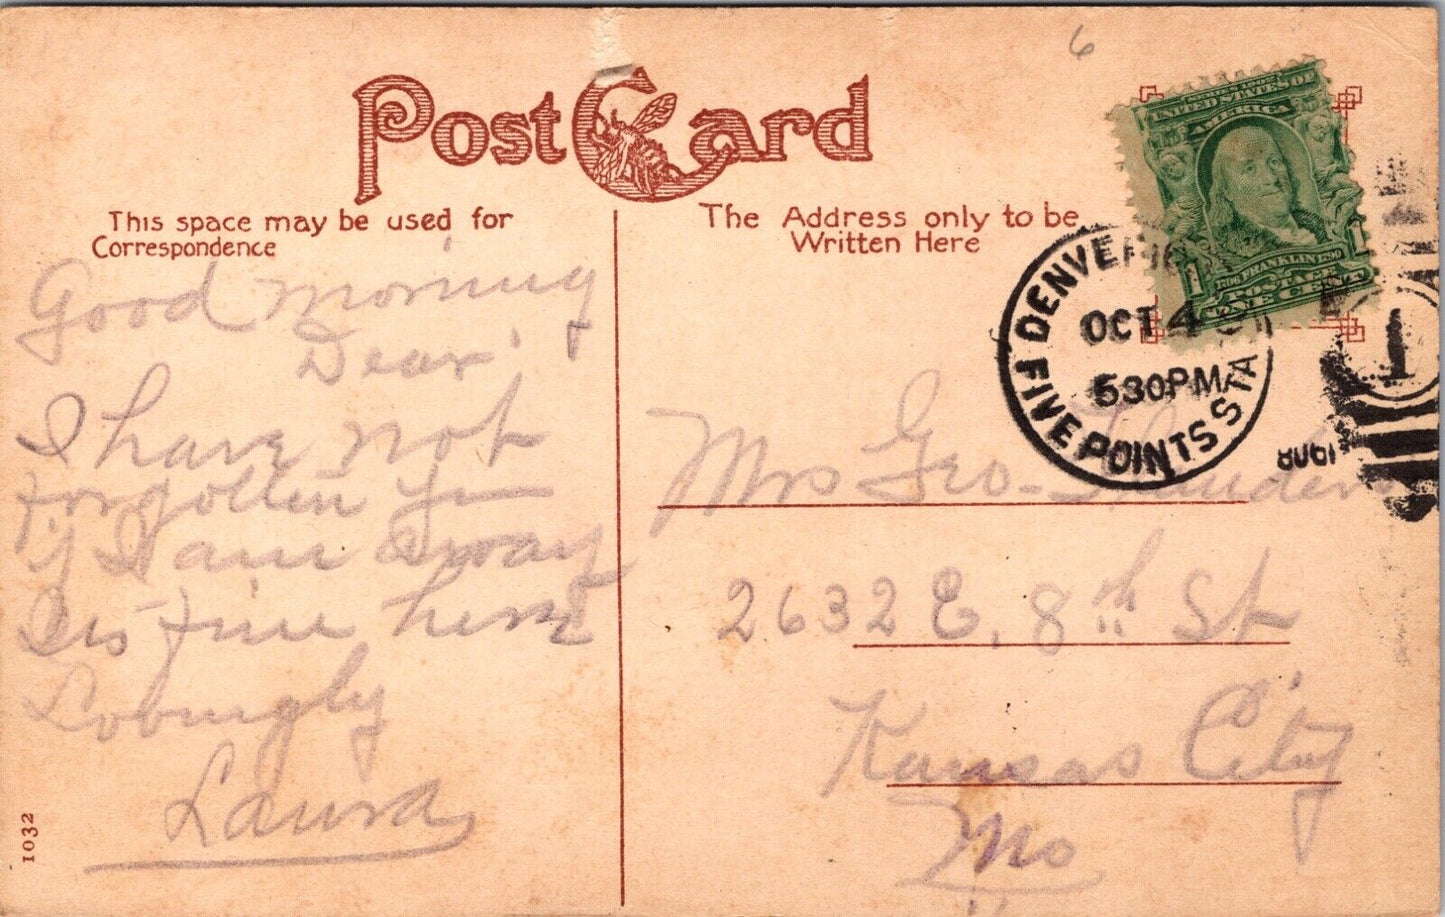 6
Post Card
This space may be used for
Correspondence
The Address only to be
Written Here
UNITED STATES OF
AMERICA
1706 FRANKLIN 1790
POSTAGE
1 ONE CENT 1
DENVER
OCT 4
530PM
FIVE POINTS STA
1908
1
Good morning
Dear,
I have not
forgotten you
if I am away
Its fine here
Lovingly
Laura
Mrs Geo.
2632 E. 8th St
Kansas City
Mo
1032